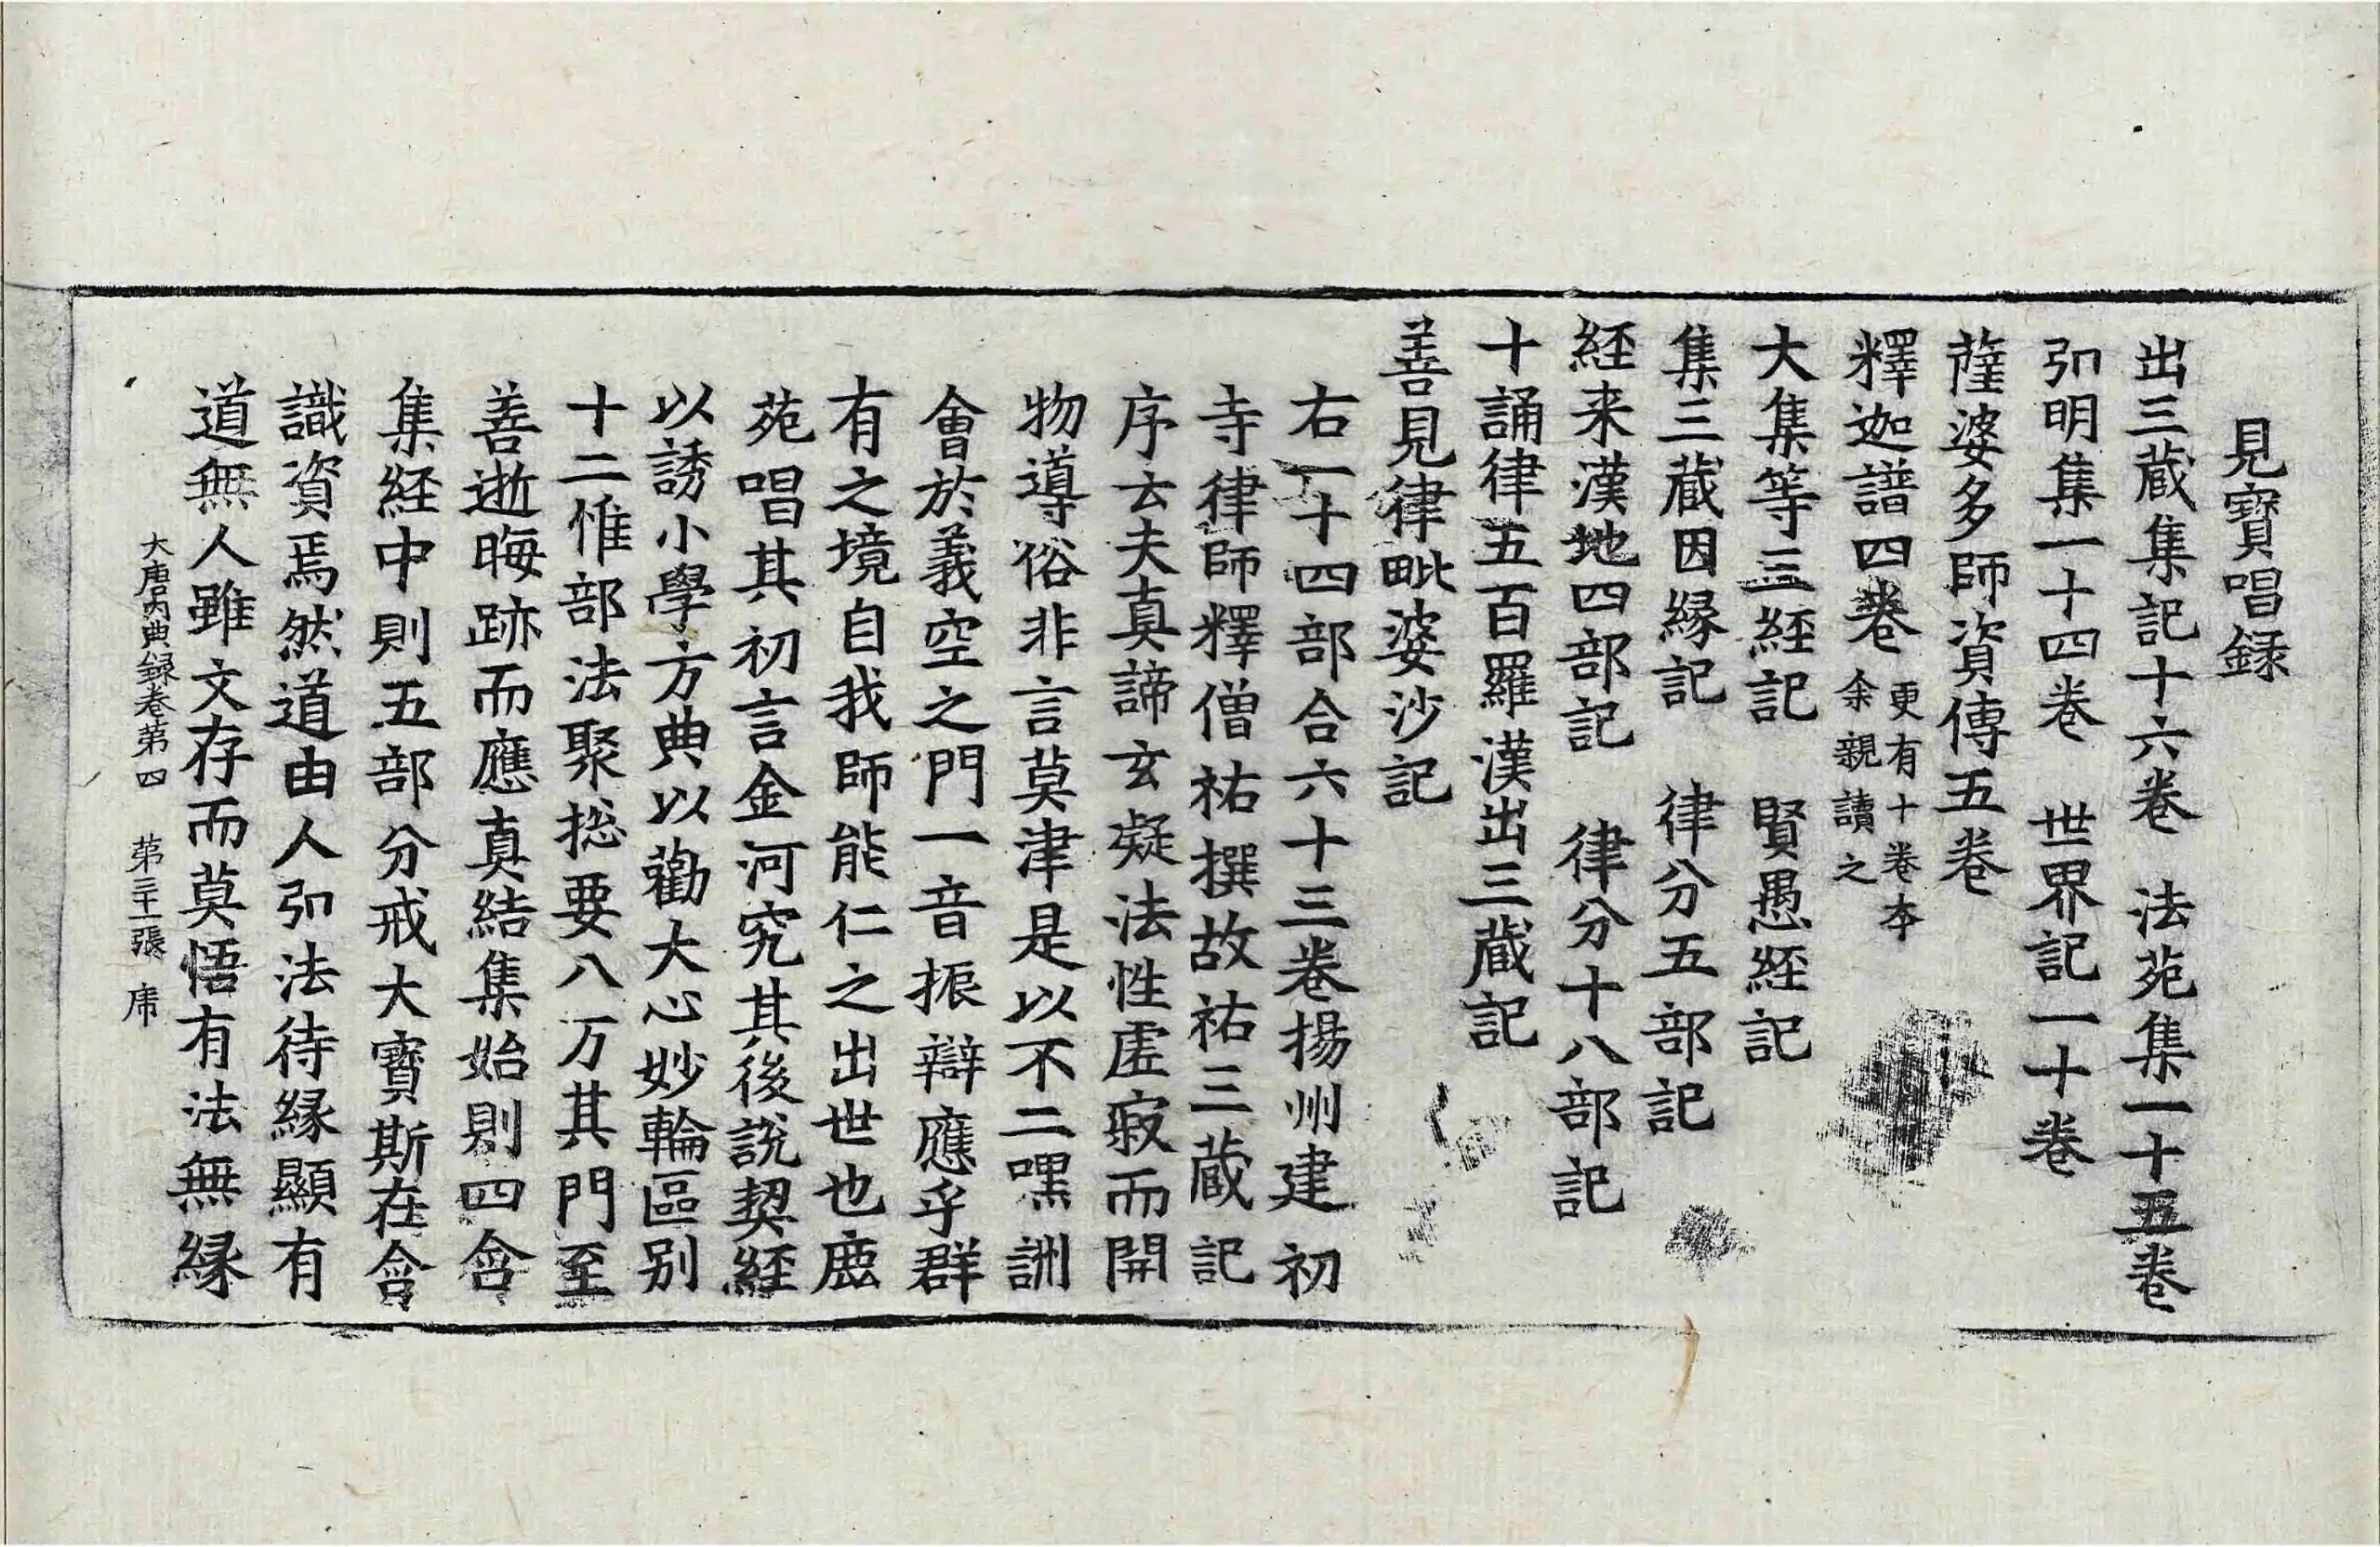 見寶唱録
出三蔵集記十六卷　法苑集一十五卷
弘明集一十四卷　世界記一十卷
薩婆多師資傳五卷
釋迦譜四卷 更有十卷本
余親讀之
大集等三經記　賢愚經記
集三蔵因縁記　律分五部記
經来漢地四部記　律分十八部記
十誦律五百羅漢出三蔵記
善見律毗婆沙記
右一十四部合六十三卷揚州建初
寺律師釋僧祐撰故祐三蔵記
序云夫真諦玄凝法性虛寂而開
物導俗非言莫津是以不二嘿詶
會於義空之門一音振辯應乎群
有之境自我師能仁之出世也鹿
苑唱其初言金河究其後說契經
以誘小學方典以勸大心妙輪區別
十二惟部法聚捴要八万其門至
善逝晦跡而應真結集始則四含
集經中則五部分戒大寶斯在含
識資焉然道由人弘法待縁顯有
道無人雖文存而莫悟有法無縁
大唐内典録卷第四　第三十一張　席